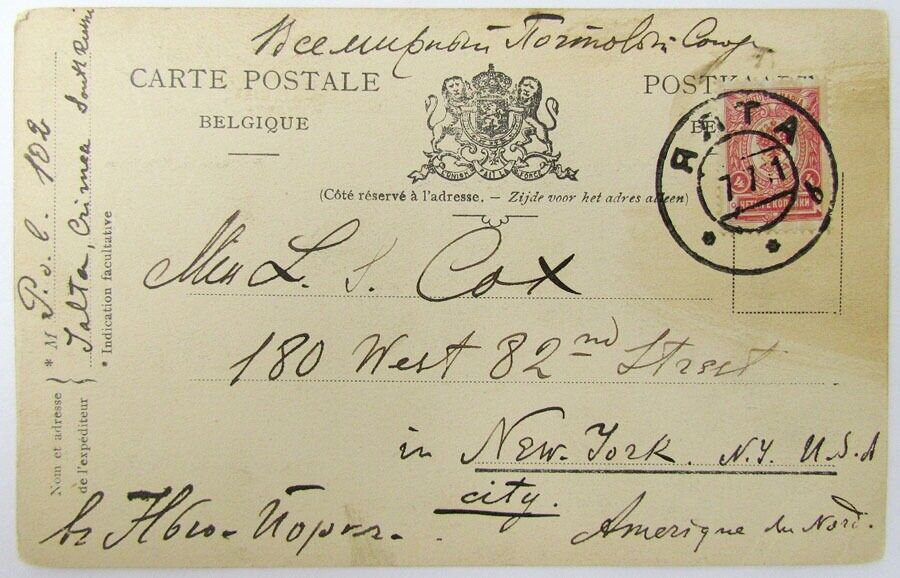 Всемирный Почтовый Союз
CARTE POSTALE
POSTKAART
BELGIQUE
BE
ЯЛТА
7 7 1
4 4
ЧЕТЫРЕ КОПѢЙКИ
L'UNION FAIT LA FORCE
(Côté réservé à l'adresse. – Zijde voor het adres alleen)
Miss L. S. Cox
180 West 82nd Street
in New-York. N.Y. U.S.A
city.
въ Нью-Йоркъ.
Amerique du Nord.
Nom et adresse de l'expéditeur
* M P. o. b. 102
Yalta, Crimea South Russi
* Indication facultative